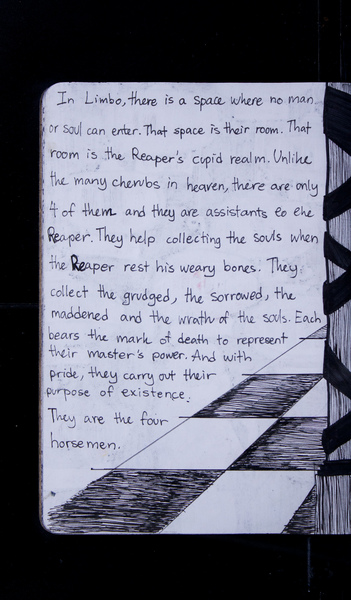 In Limbo, there is a space where no man
or soul can enter. That space is their room. That
room is the Reaper's cupid realm. Unlike
the many cherubs in heaven, there are only
4 of them and they are assistants to the
Reaper. They help collecting the souls when
the Reaper rest his weary bones. They
collect the grudged, the sorrowed, the
maddened and the wrath of the souls. Each
bears the mark of death to represent
their master's power. And with
pride, they carry out their
purpose of existence.
They are the four
horsemen.